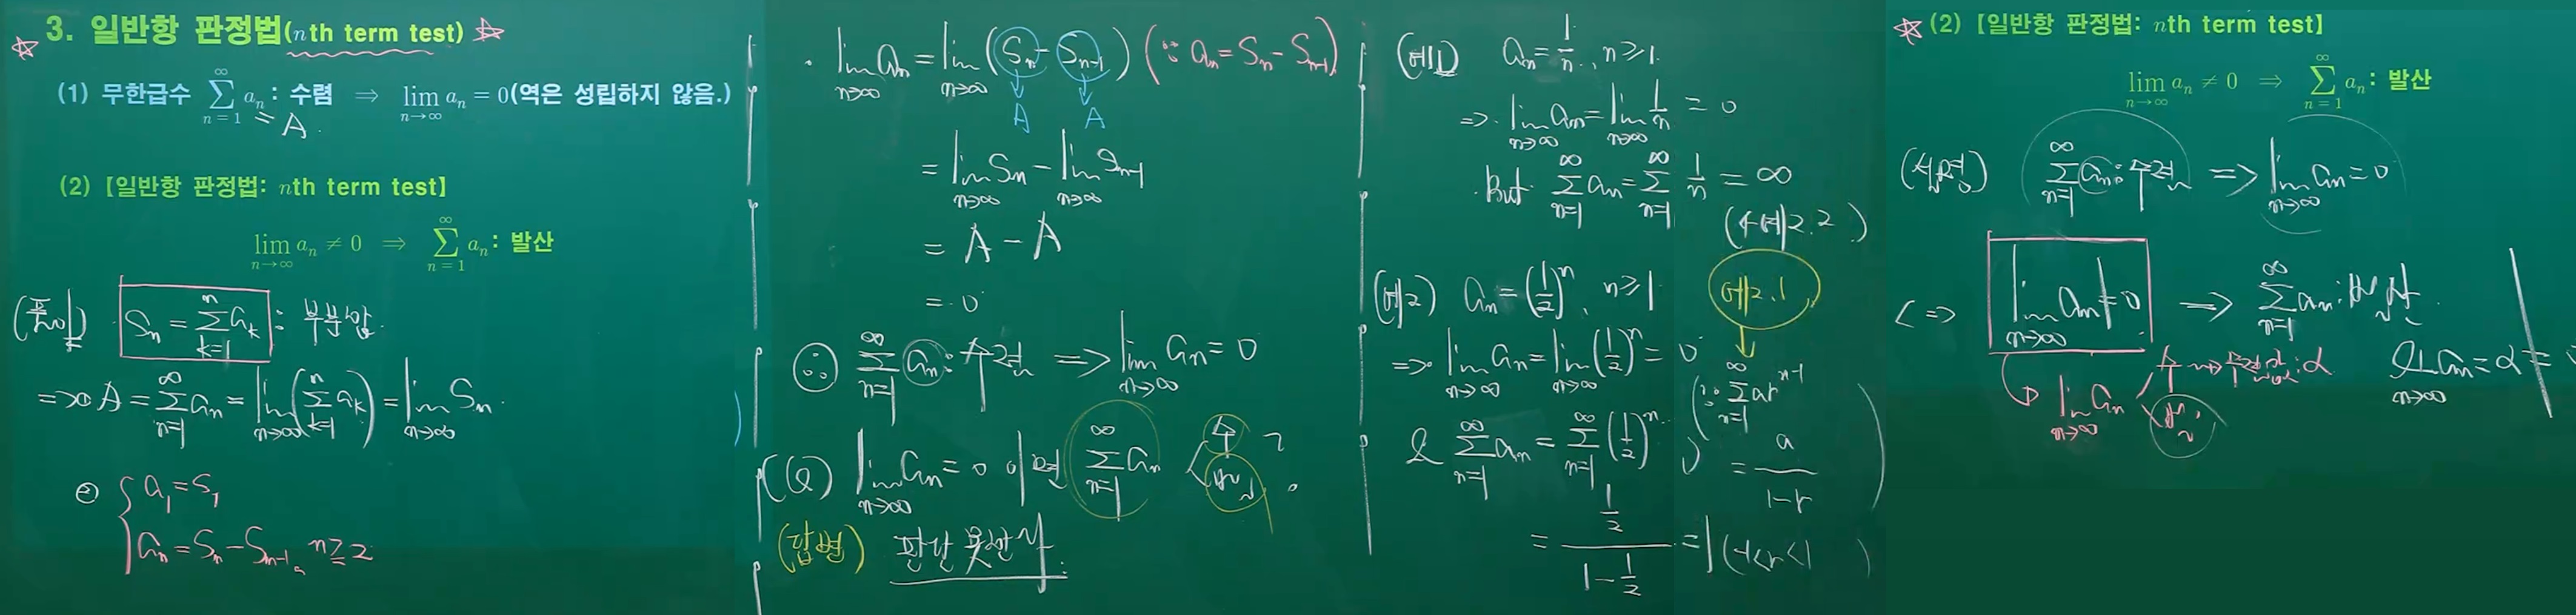 3. 일반항 판정법(nth term test)
(1) 무한급수 ∑_{n=1}^{∞} a_n : 수렴 ⇒ lim_{n→∞} a_n = 0(역은 성립하지 않음.)
= A
(2) [일반항 판정법: nth term test]
lim_{n→∞} a_n ≠ 0 ⇒ ∑_{n=1}^{∞} a_n : 발산
(풀이) S_n = ∑_{k=1}^{n} a_k : 부분합
⇒ ① A = ∑_{n=1}^{∞} a_n = lim_{n→∞} (∑_{k=1}^{n} a_k) = lim_{n→∞} S_n
② { a_1 = S_1
a_n = S_n - S_{n-1}, n ≥ 2
· lim_{n→∞} a_n = lim_{n→∞} (S_n - S_{n-1}) (∵ a_n = S_n - S_{n-1})
A A
= lim_{n→∞} S_n - lim_{n→∞} S_{n-1}
= A - A
= 0
∴ ∑_{n=1}^{∞} a_n : 수렴 ⇒ lim_{n→∞} a_n = 0
(Q) lim_{n→∞} a_n = 0 이면 ∑_{n=1}^{∞} a_n < 수 발 ?
(답변) 판단 못한다.
(예1) a_n = 1/n, n ≥ 1
⇒ lim_{n→∞} a_n = lim_{n→∞} 1/n = 0
But ∑_{n=1}^{∞} a_n = ∑_{n=1}^{∞} 1/n = ∞
(예제 2.2)
(예2) a_n = (1/2)^n, n ≥ 1
예제 2.1
⇒ lim_{n→∞} a_n = lim_{n→∞} (1/2)^n = 0
& ∑_{n=1}^{∞} a_n = ∑_{n=1}^{∞} (1/2)^n
= (1/2)/(1 - 1/2) = 1
(∵ ∑_{n=1}^{∞} ar^{n-1}
= a/(1-r)
(-1<r<1)
(2) [일반항 판정법: nth term test]
lim_{n→∞} a_n ≠ 0 ⇒ ∑_{n=1}^{∞} a_n : 발산
(설명) ∑_{n=1}^{∞} a_n : 수렴 ⇒ lim_{n→∞} a_n = 0
<=> lim_{n→∞} a_n ≠ 0 ⇒ ∑_{n=1}^{∞} a_n : 발산
lim_{n→∞} a_n < 수 발
lim_{n→∞} a_n = α =